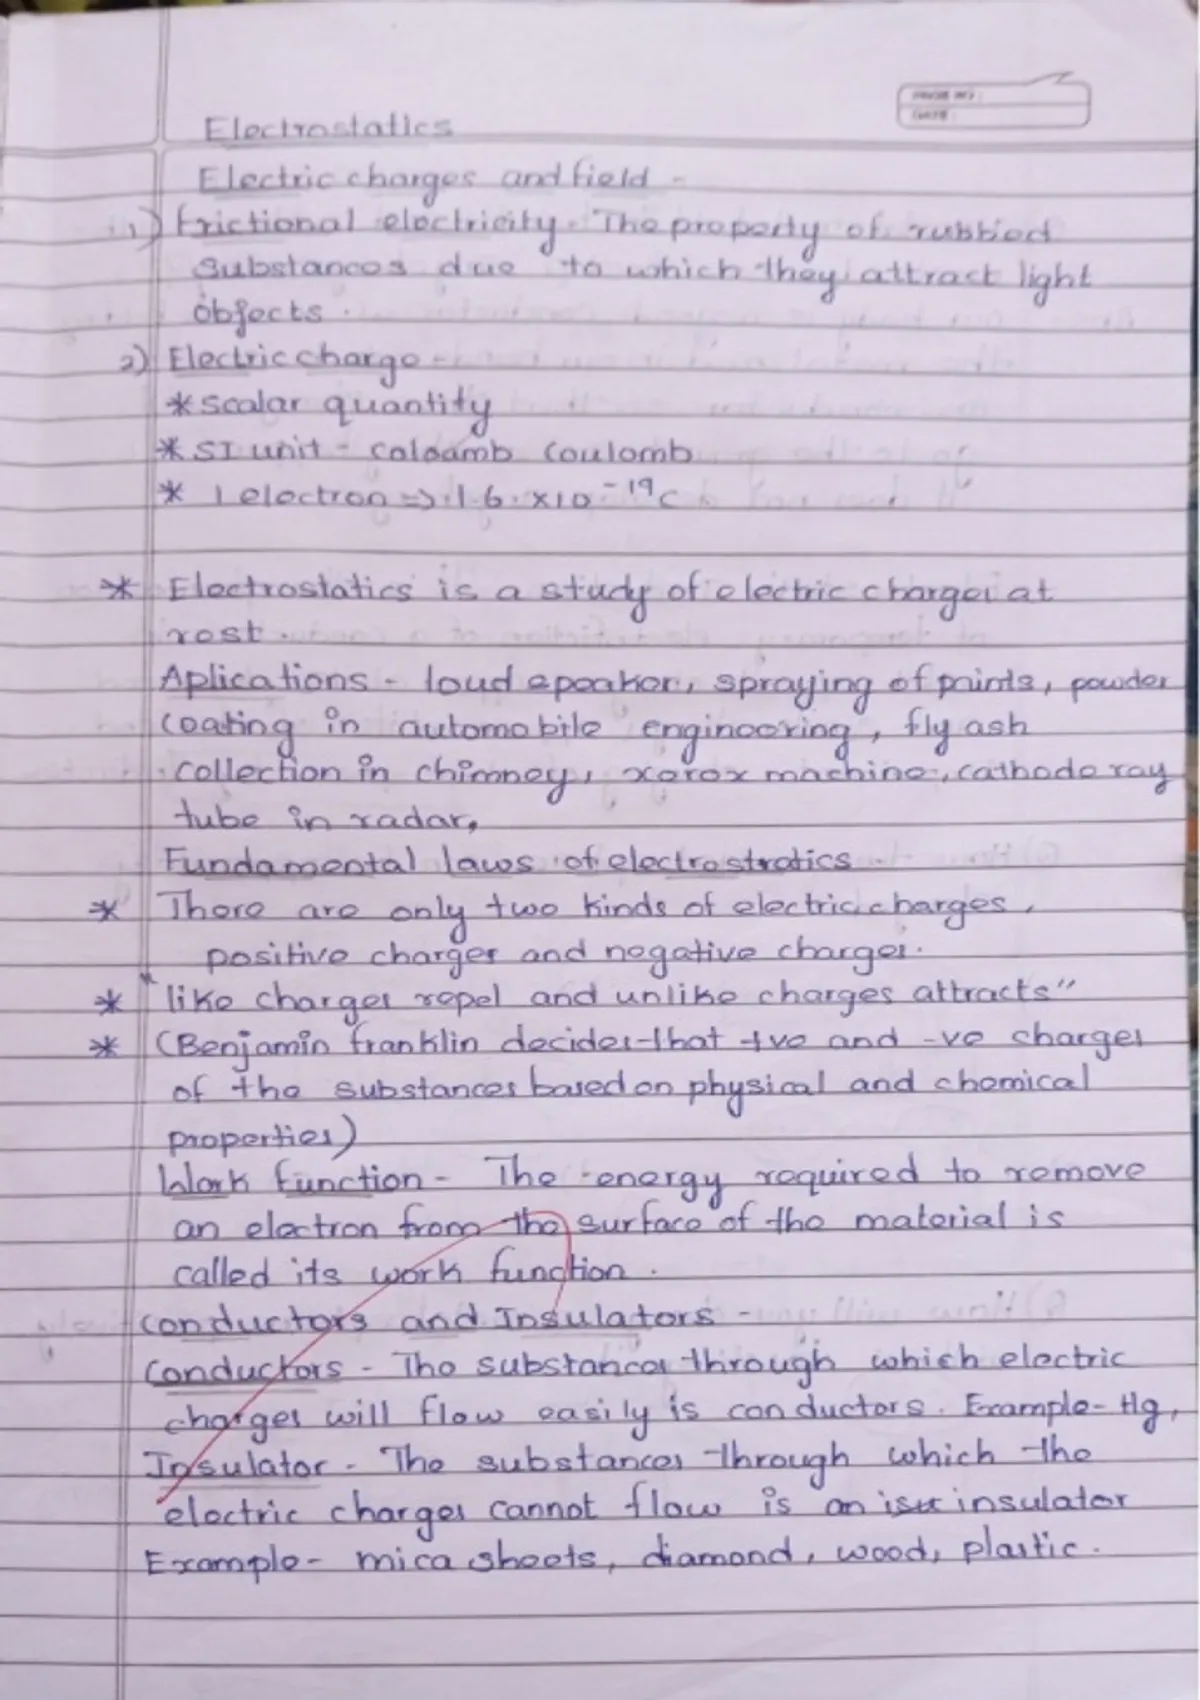 PAGE NO :
DATE :
Electrostatics
Electric charges and field -
1) Frictional electricity - The property of rubbied
Substances due to which they attract light
objects.
2) Electric charge -
* Scalar quantity
* SI unit - coloamb Coulomb
* 1 electron => 1.6 x 10^-19 C
* Electrostatics is a study of electric charges at
rest.
Aplications - loud speaker, spraying of paints, powder
coating in automobile engineering, fly ash
collection in chimney, xerox machine, cathode ray
tube in radar,
Fundamental laws of electrostratics -
* There are only two kinds of electric charges,
positive charges and negative charges.
* "like charges repel and unlike charges attracts"
* (Benjamin franklin decides that +ve and -ve charges
of the substances based on physical and chemical
properties)
Work function - The energy required to remove
an electron from the surface of the material is
called its work function.
Conductors and Insulators -
Conductors - The substances through which electric
charges will flow easily is conductors. Example - Hg,
Insulator - The substances through which the
electric charges cannot flow is an insulator
Example - mica sheets, diamond, wood, plastic.